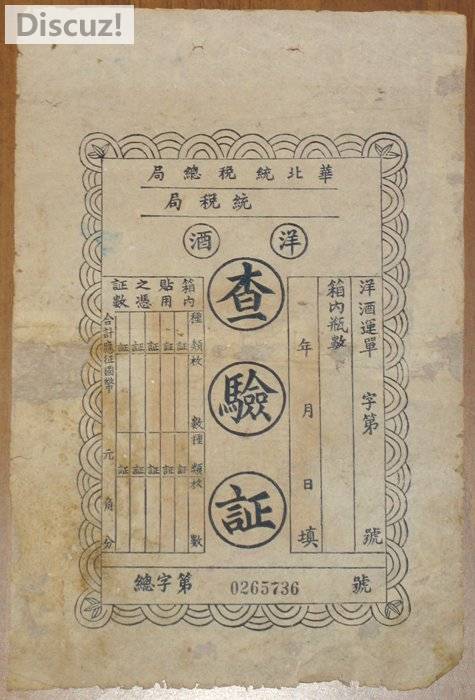 Discuz!
華北統稅總局
統稅局
洋酒
查驗証
洋酒運單 字第 號
箱內瓶數
年 月 日 填
箱內貼用之憑証數
種類枚數 種類枚數
証 証 証 証
証 証 証 証
合計應征國幣 元 角 分
總字第 0265736 號